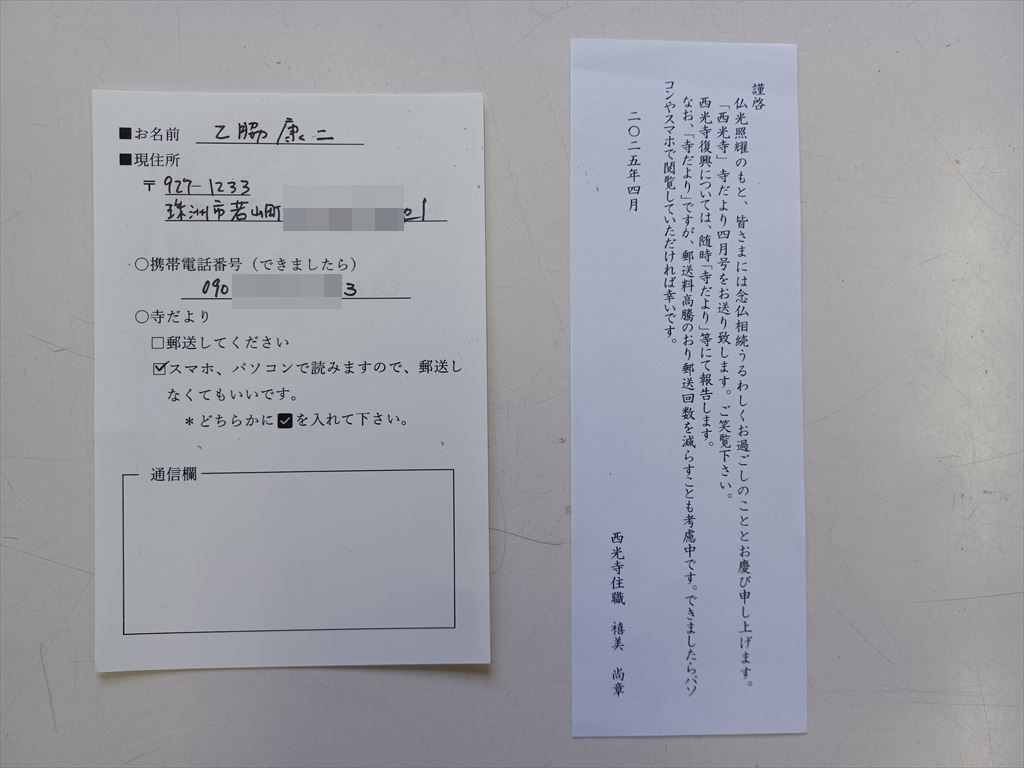 ■お名前 乙脇 康二
■現住所
〒927-1233
珠洲市若山町 21
○携帯電話番号（できましたら）
090 3
○寺だより
□郵送してください
☑スマホ、パソコンで読みますので、郵送し
なくてもいいです。
＊どちらかに☑を入れて下さい。
通信欄
謹啓
仏光照耀のもと、皆さまには念仏相続うるわしくお過ごしのこととお慶び申し上げます。
「西光寺」寺だより四月号をお送り致します。ご笑覧下さい。
西光寺復興については、随時「寺だより」等にて報告します。
なお、「寺だより」ですが、郵送料高騰のおり郵送回数を減らすことも考慮中です。できましたらパソ
コンやスマホで閲覧していただければ幸いです。
二〇二五年四月
西光寺住職 禧美 尚章